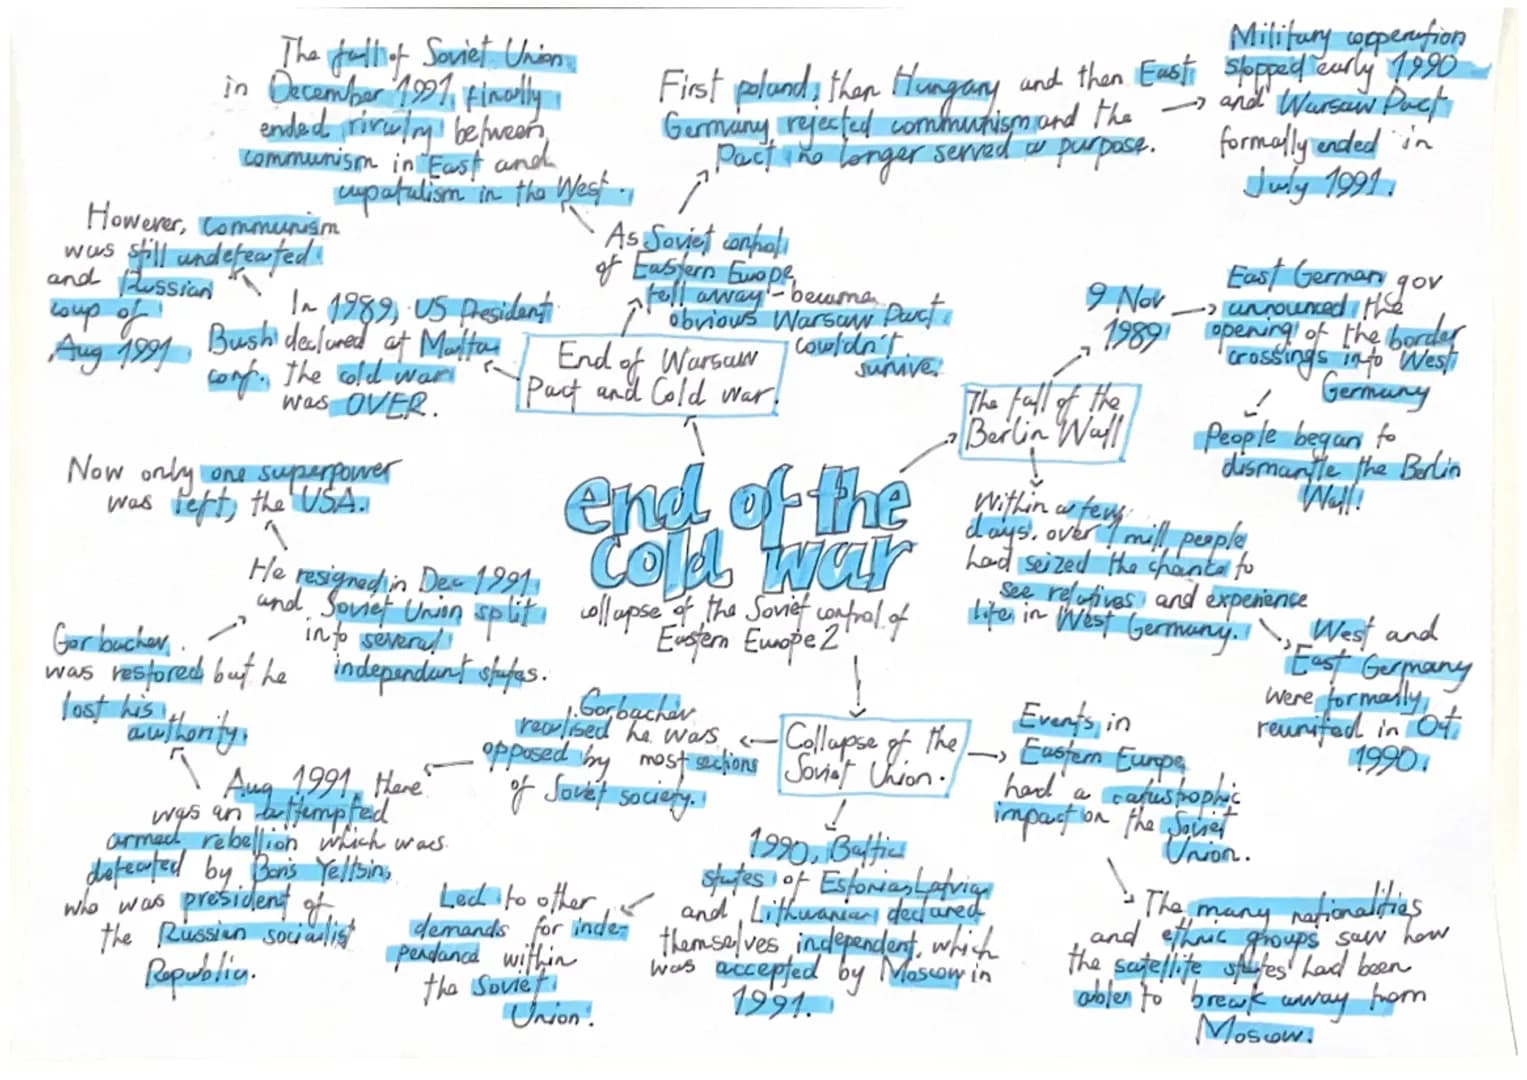 The fall of Soviet Union
in December 1991, finally
ended rivalry between
communism in East and
capatalism in the West.
First poland, then Hungary and then East
Germany rejected communism and the
Pact no longer served a purpose.
Military copperation
stopped early 1990
and Warsaw Pact
formally ended in
July 1991.
However, communism
was still undefeated
and Russian
coup of
Aug 1991
In 1989, US President
Bush declared at Malta
conf. the cold war
was OVER.
As Soviet control
of Eastern Europe
fell away - became
obvious Warsaw Pact
couldn't
survive.
End of Warsaw
Pact and Cold war.
9 Nov
1989
East German gov
announced the
opening of the border
crossings into West
Germany
People began to
dismantle the Berlin
Wall!
The fall of the
Berlin Wall
Within a few
days, over 1 mill people
had seized the chance to
see relatives and experience
life in West Germany.
West and
East Germany
were formally
reunited in Oct
1990.
Now only one superpower
was left, the USA.
end of the
cold war
collapse of the Soviet control of
Eastern Europe 2
He resigned in Dec 1991
and Soviet Union split
into several
independant states.
Gorbachev
was restored but he
lost his
authority.
Gorbachev
realised he was
opposed by most sections
of Soviet society.
Collapse of the
Soviet Union.
Events in
Eastern Europe
had a catastrophic
impact on the Soviet
Union.
Aug 1991, there
was an attempted
armed rebellion which was
defeated by Boris Yeltsin,
who was president of
the Russian socialist
Republic.
Led to other
demands for inde-
pendance within
the Soviet
Union.
1990, Baltic
states of Estonia, Latvia
and Lithuania declared
themselves independent, which
was accepted by Moscow in
1991.
The many nationalities
and ethnic groups saw how
the satellite states had been
able to break away from
Moscow.